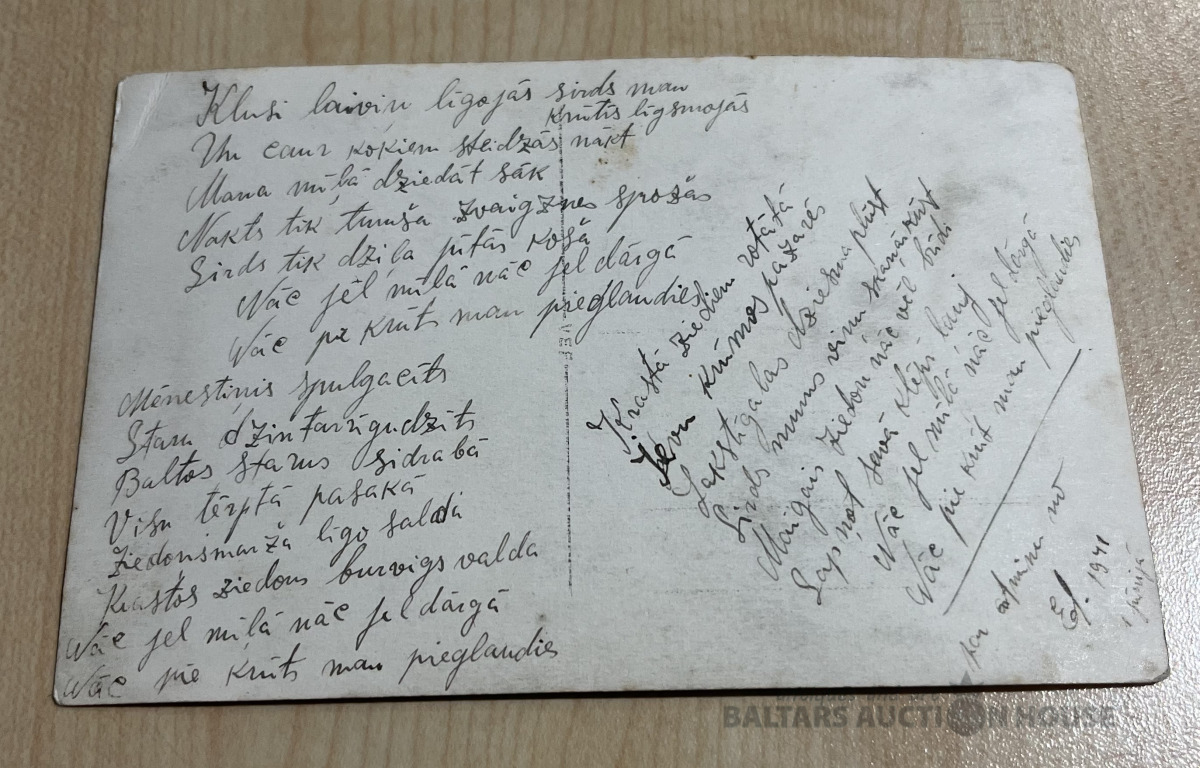 Klusi laiviņ līgojās sirds man
krūtīs līgsmojās
Un caur kokiem steidzās nākt
Mana mīļā dziedāt sāk
Nakts tik tumša zvaigznes spožās
Sirds tik dziļa jūtās košā
Nāc jel mīlā nāc jel dārgā
Nāc pe krūt man pieglaudies
Mēnestiņis spulgacīts
Staru dzintariņgudzīts
Baltos starus sidrabā
Visu tērptā pasakā
Ziedonsmaržā līgo salda
Krastos ziedons burvīgs valda
Nāc jel mīļā nāc jel dārgā
Nāc pie krūts man pieglaudies
Krastā ziediem rotātā
Ievu krūmos pazarēs
Lakstīgalas dziesma plūst
Sirds mums viņu skaņās kūst
Maigais ziedon nāc vēl būdi
Sapņot savā klēpī ļauj
Nāc jel mīlā nāc jel dārgā
Nāc pie krūt man pieglaudies
par atmiņu no
Ed. 1941
jūnijā
BALTARS AUCTION HOUSE